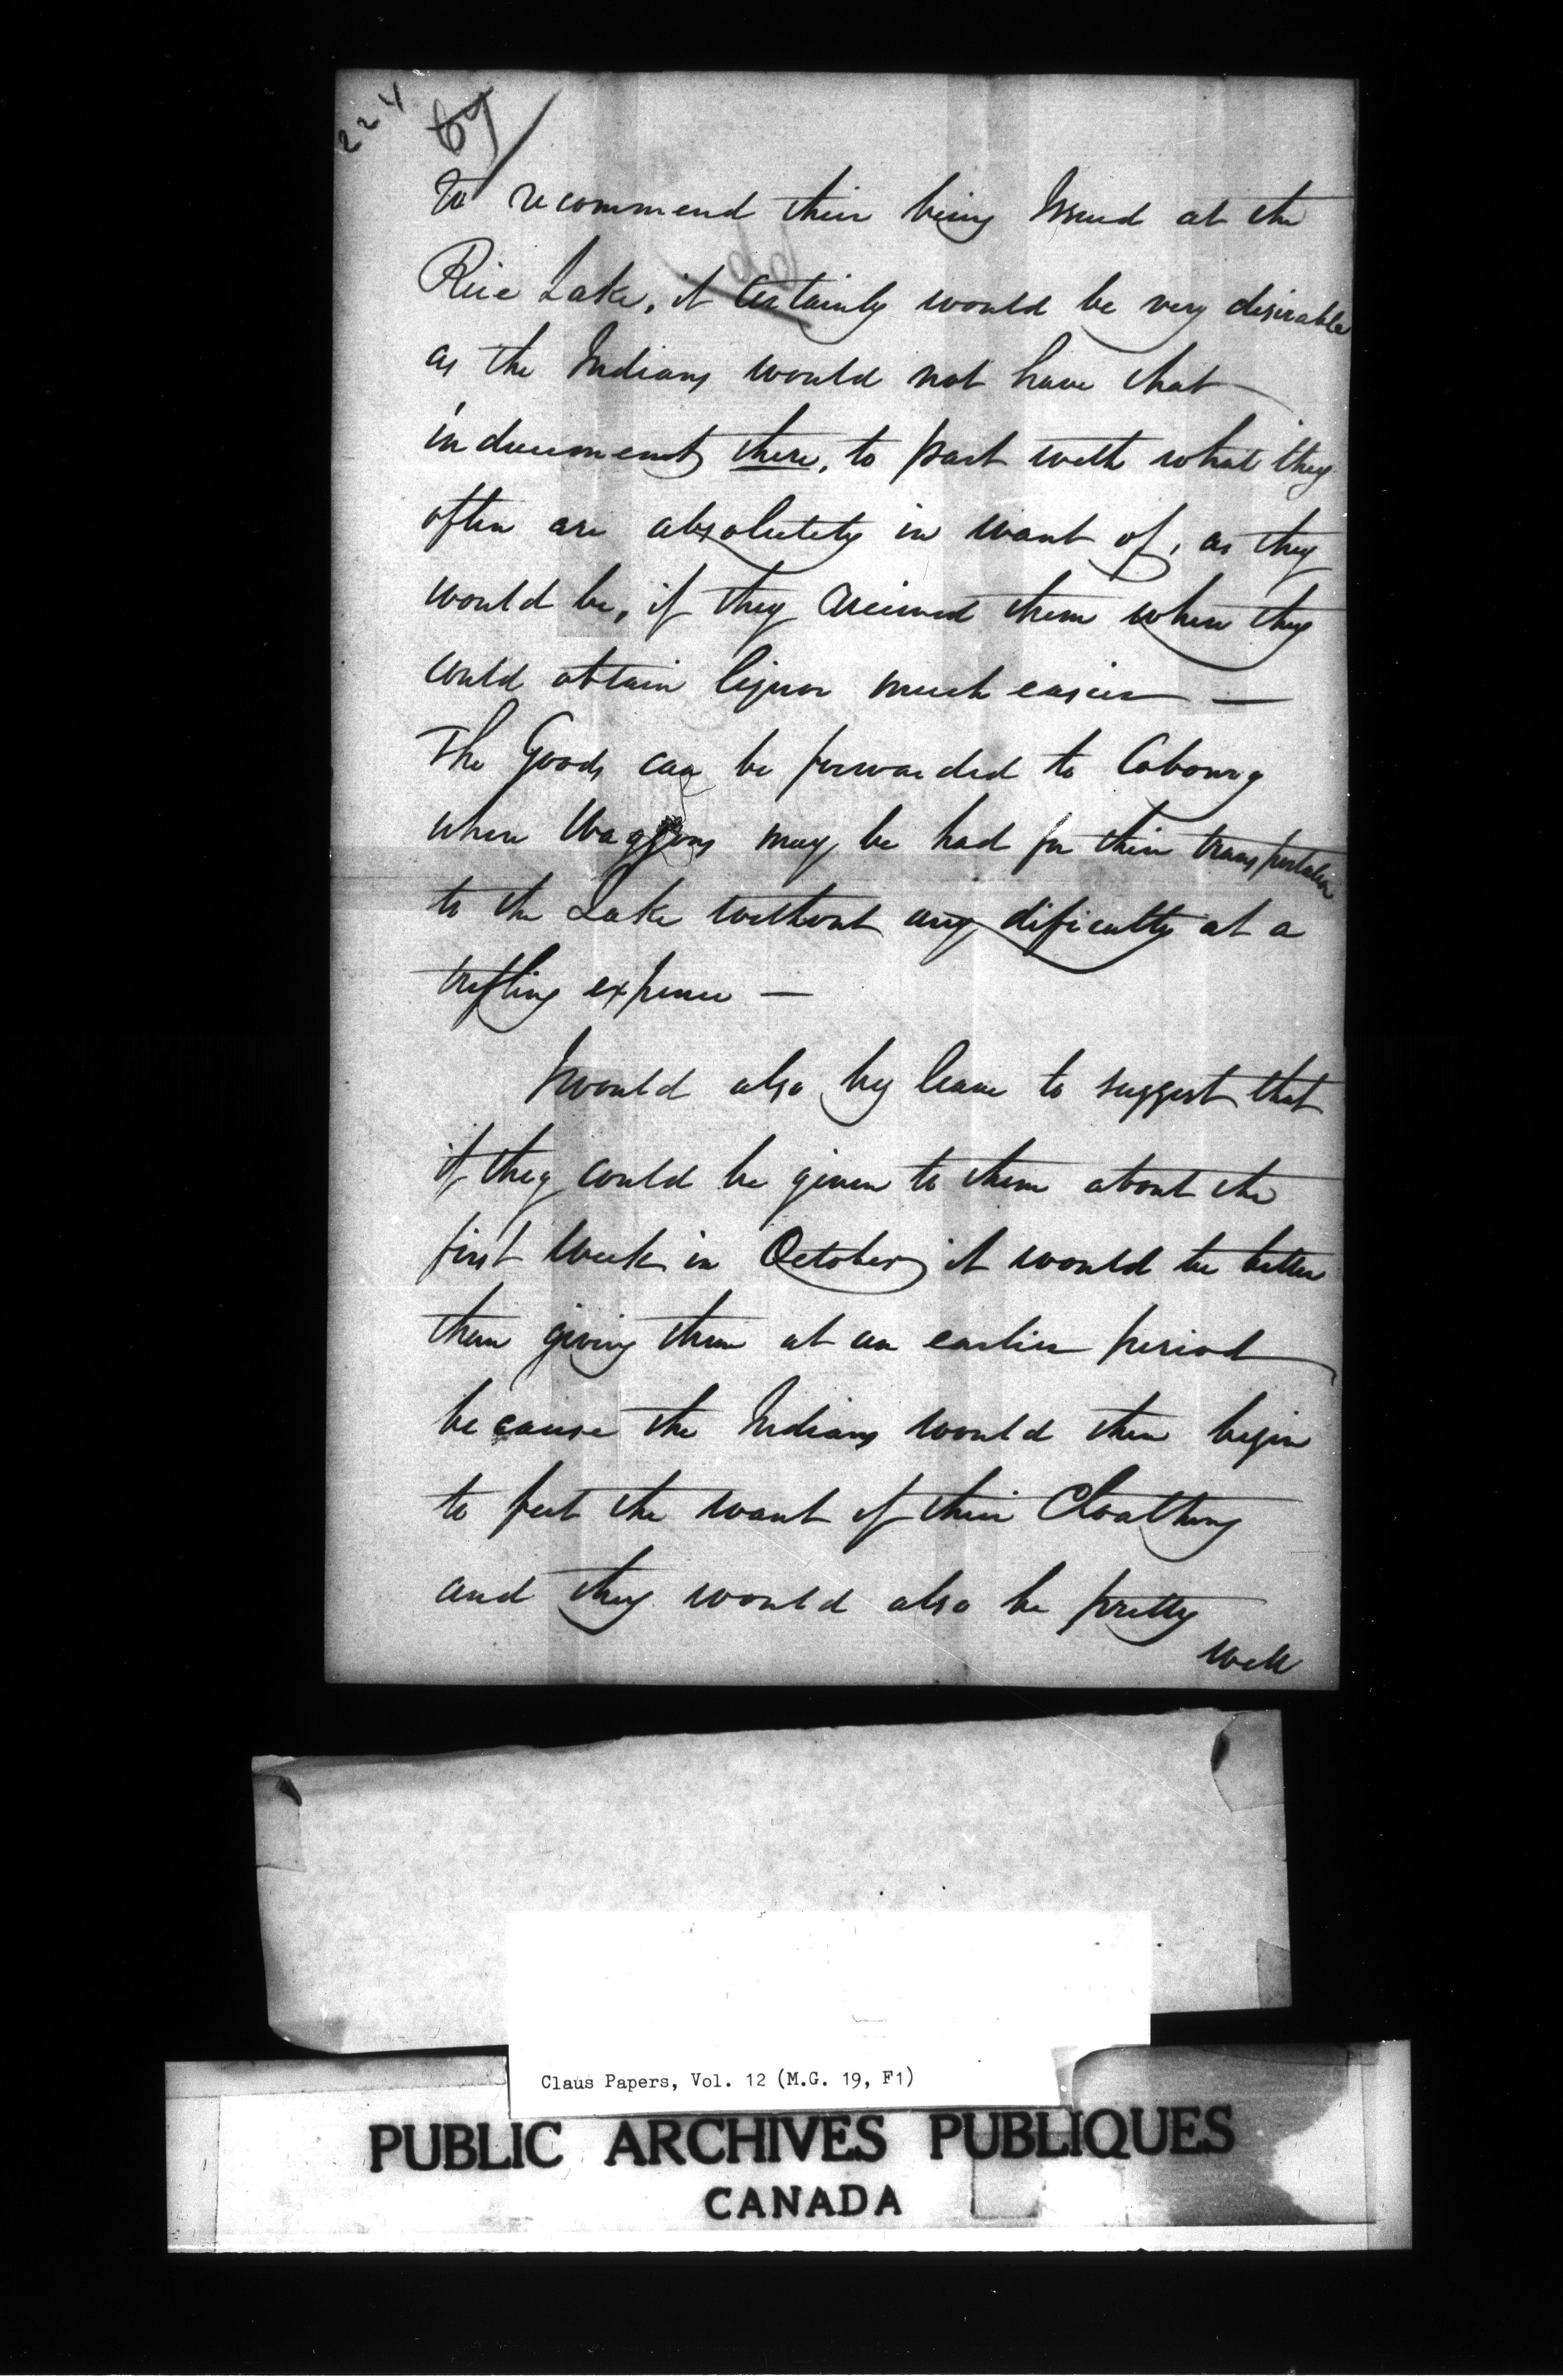 224
67
to recommend their being Issued at the
Rice Lake, it certainly would be very desirable
as the Indians would not have that
inducement there, to part with what they
often are absolutely in want of, as they
would be, if they received them where they
could obtain liquor much easier —
The Goods can be forwarded to Cobourg
where Waggons may be had for their transportation
to the Lake without any dificulty at a
trifling expence —
I would also beg leave to suggest that
if they could be given to them about the
first Week in October it would be better
than giving them at an earlier period
because the Indians would then begin
to feel the want of their Cloathing
and they would also be pretty
well
Claus Papers, Vol. 12 (M.G. 19, F1)
PUBLIC ARCHIVES PUBLIQUES
CANADA